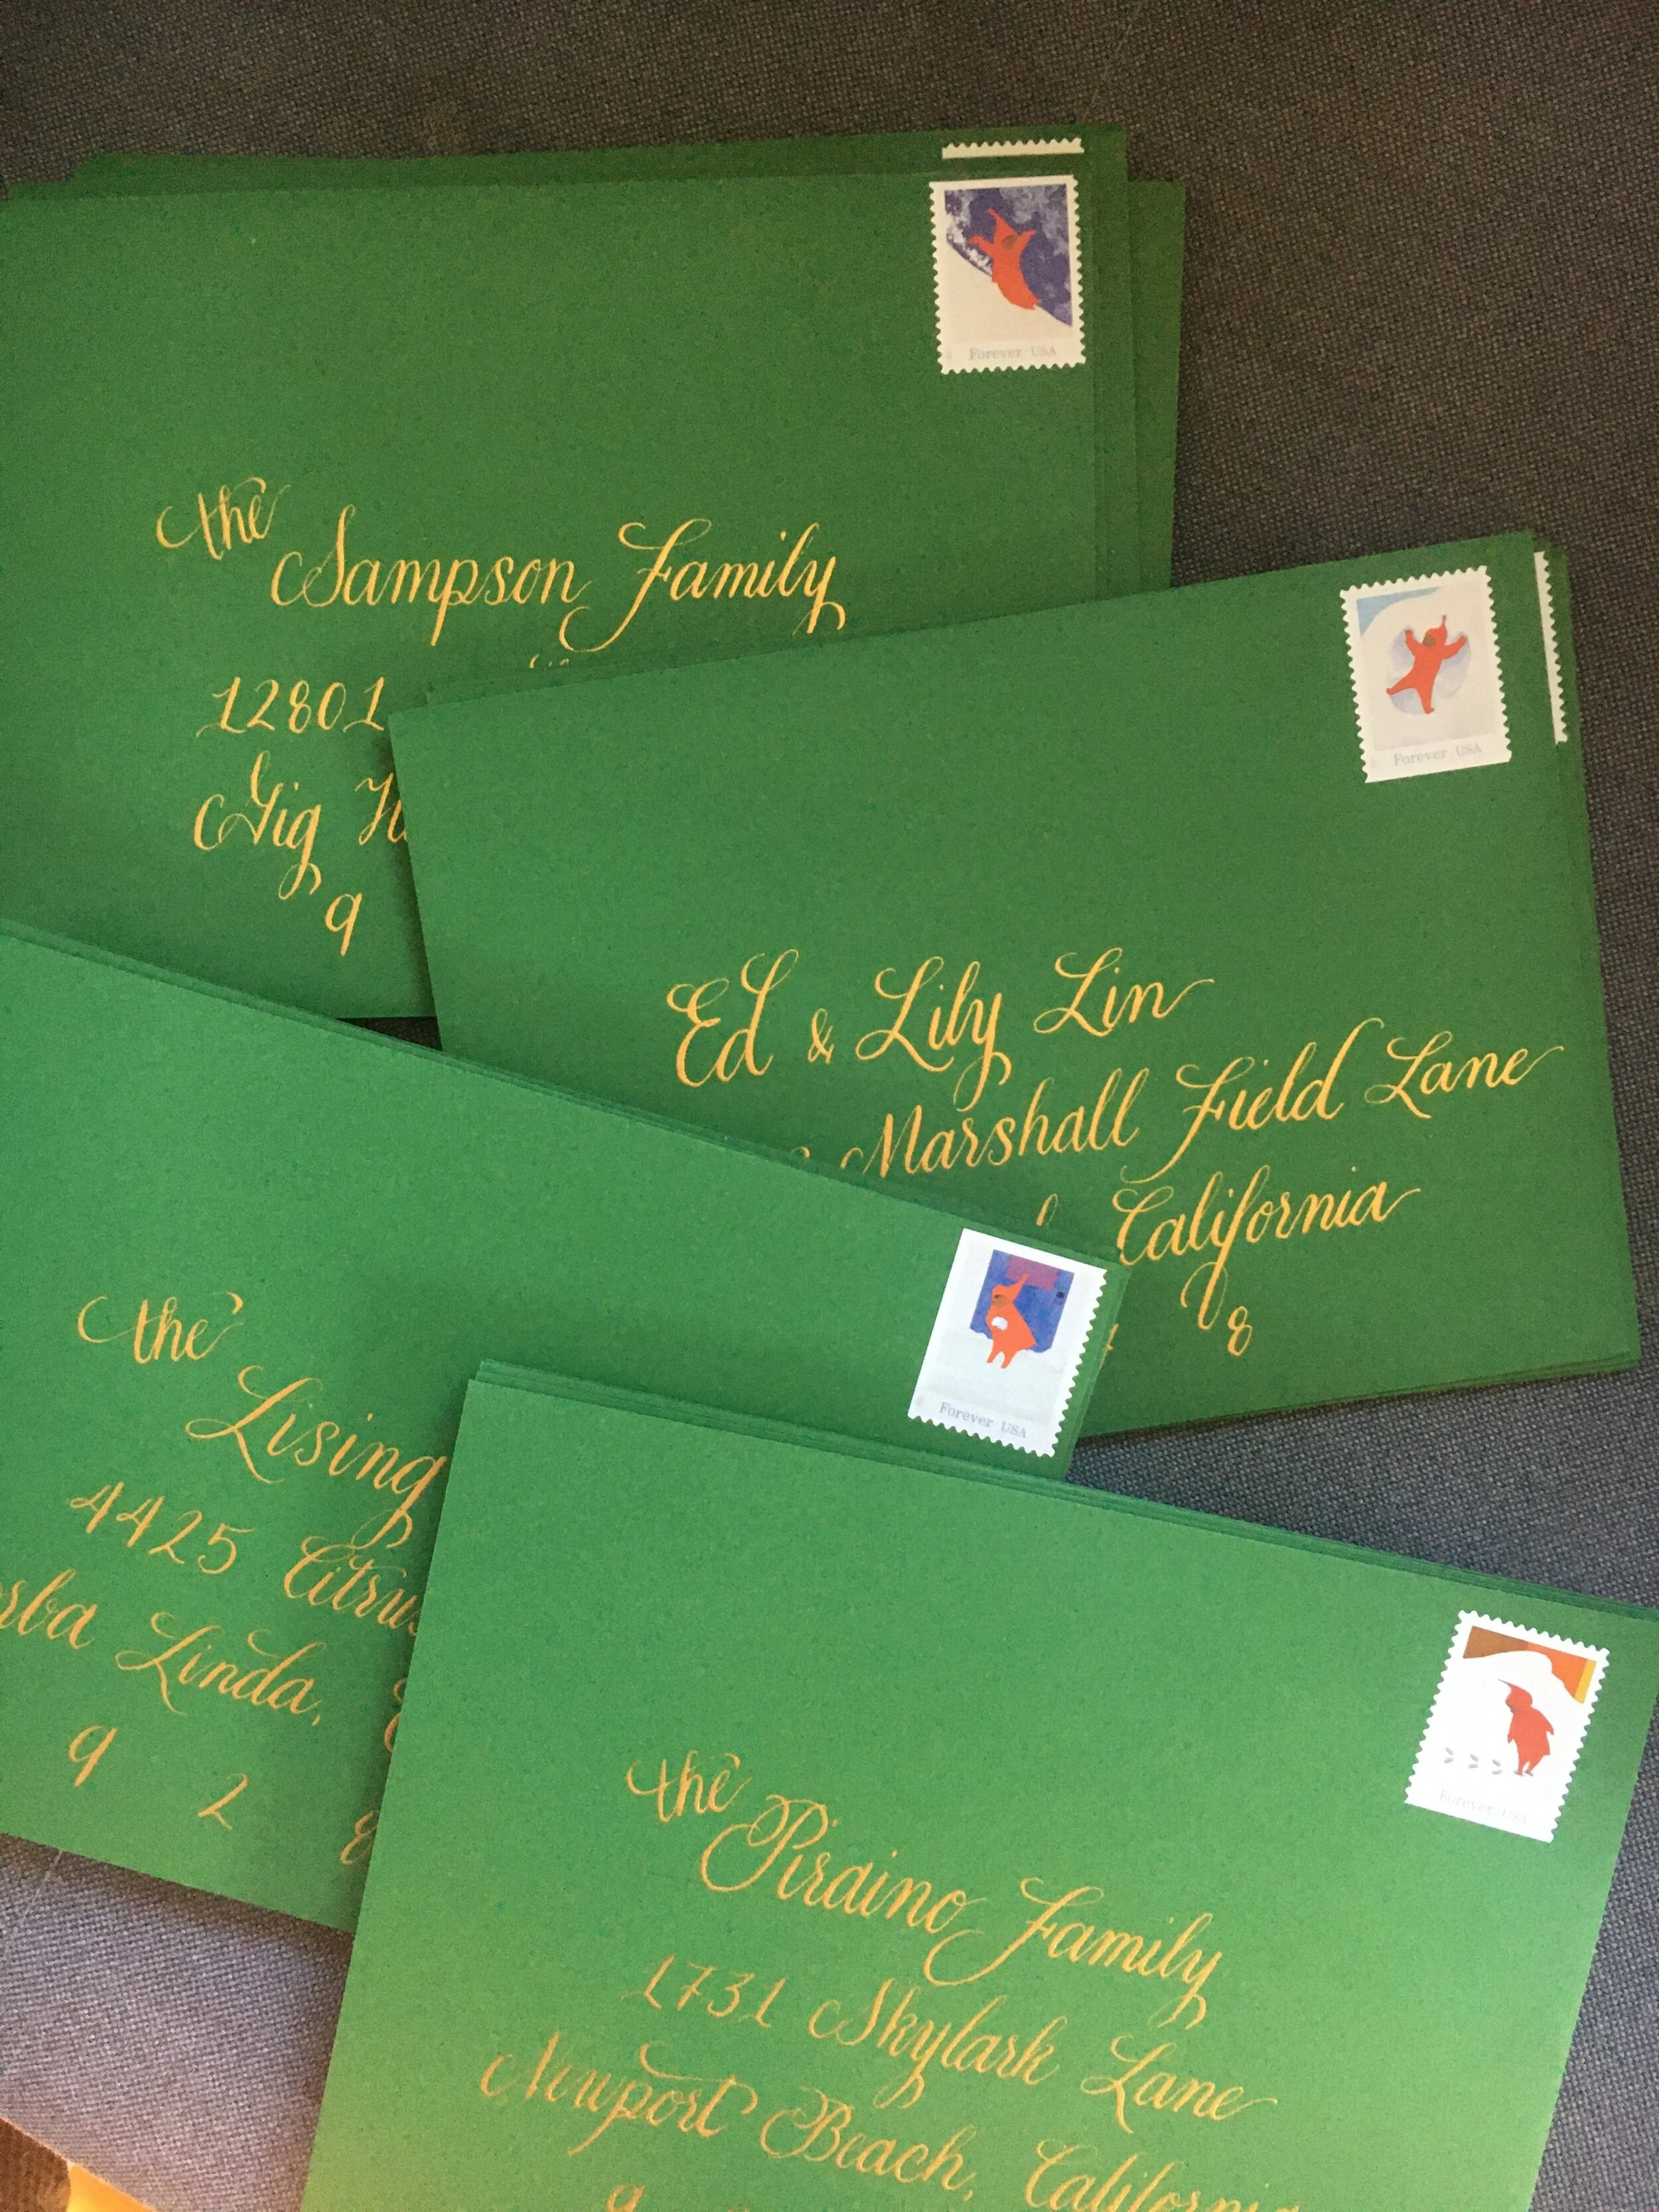 Forever USA
the
Sampson Family
12801
Gig
9
Forever USA
Ed & Lily Lin
Marshall Field Lane
California
8
Forever USA
the
Lising
4425 Citrus
Linda,
9 2
Forever USA
the
Pirdino Family
1731 Skylark Lane
Newport Beach, California
9